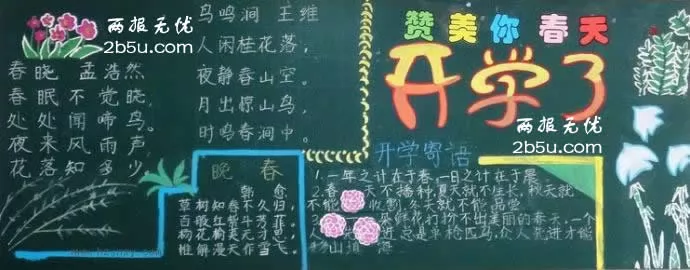 两报无优
2b5u.com
春晓 孟浩然
春眠不觉晓,
处处闻啼鸟。
夜来风雨声,
花落知多少
鸟鸣涧 王维
人闲桂花落,
夜静春山空。
月出惊山鸟,
时鸣春涧中。
晚春
韩愈
草树知春不久归
百般红紫斗芳菲
杨花榆荚无才思
惟解漫天作雪飞
赞美你春天
开学了
两报无优
2b5u.com
开学寄语
1.一年之计在于春,一日之计在于晨
2.春天不播种,夏天就不生长,秋天就
不能收割,冬天就不能品尝
3.朵鲜花打扮不出美丽的春天,一个
人先进总是单枪匹马,众人先进才能
移山填海